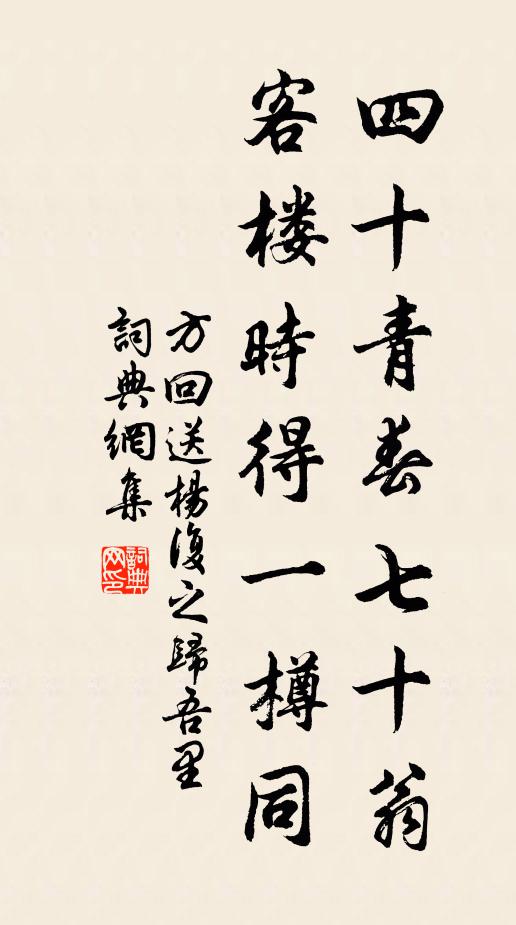 四十青春七十翁
客楼時得一樽同
方回送楊復之歸吾里
詞典網集
詞典网印